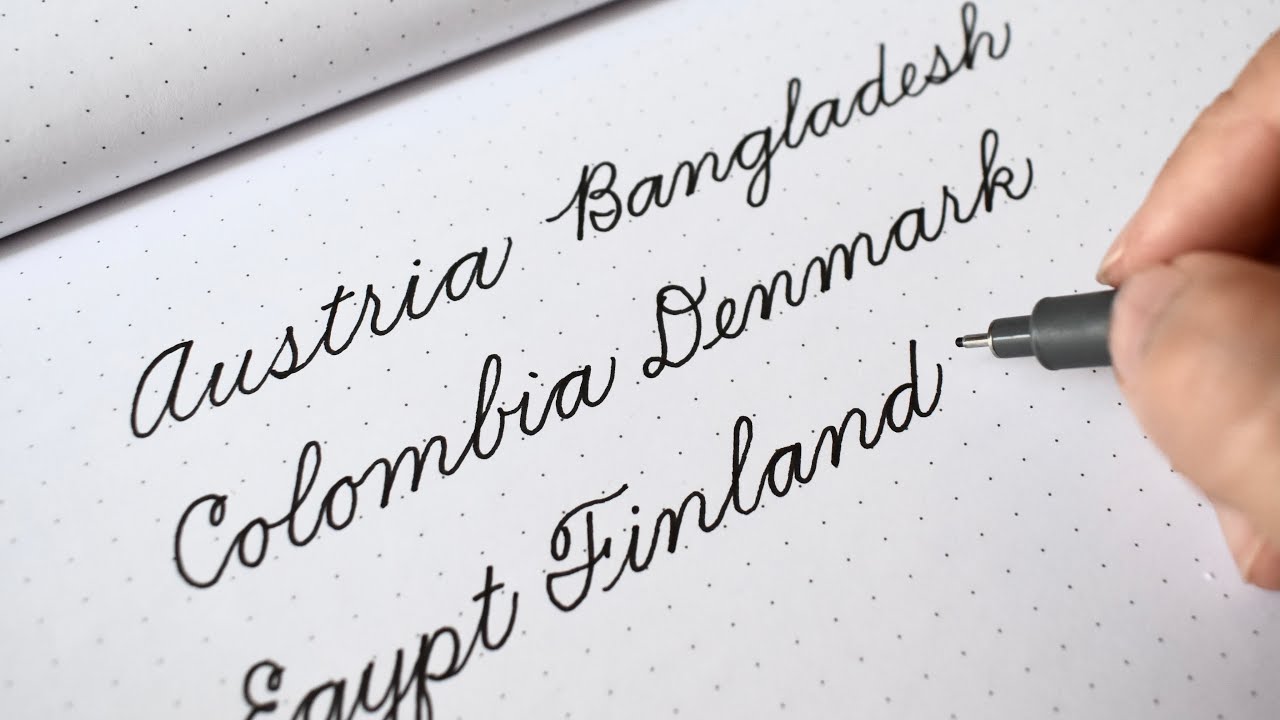 Austria Bangladesh
Colombia Denmark
Egypt Finland